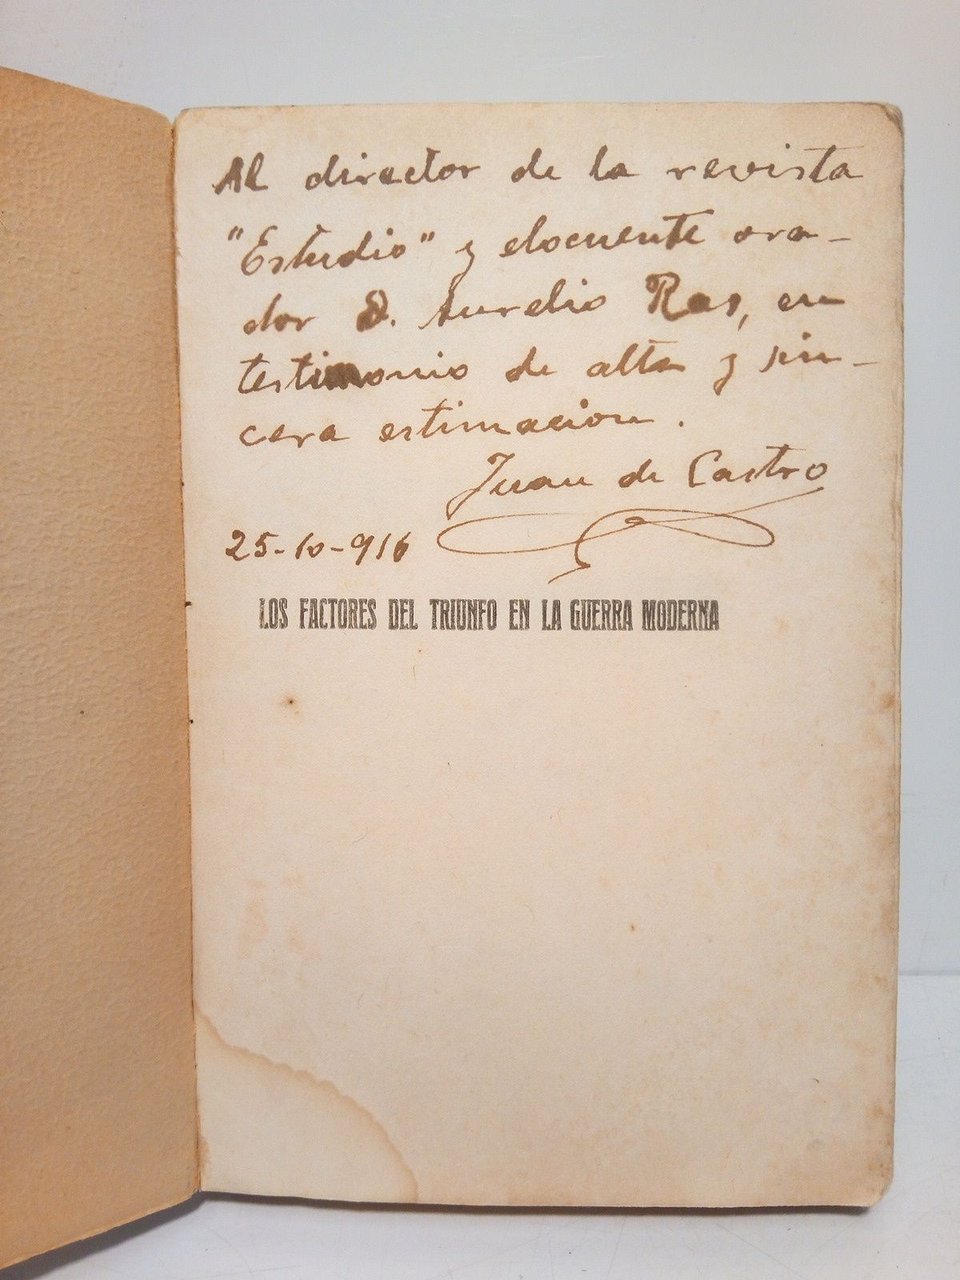 Al director de la revista
"Estudio" y elocuente ora-
dor D. Aurelio Ras, en
testimonio de alta y sin-
cera estimacion.
Juan de Castro
25-10-916
LOS FACTORES DEL TRIUNFO EN LA GUERRA MODERNA